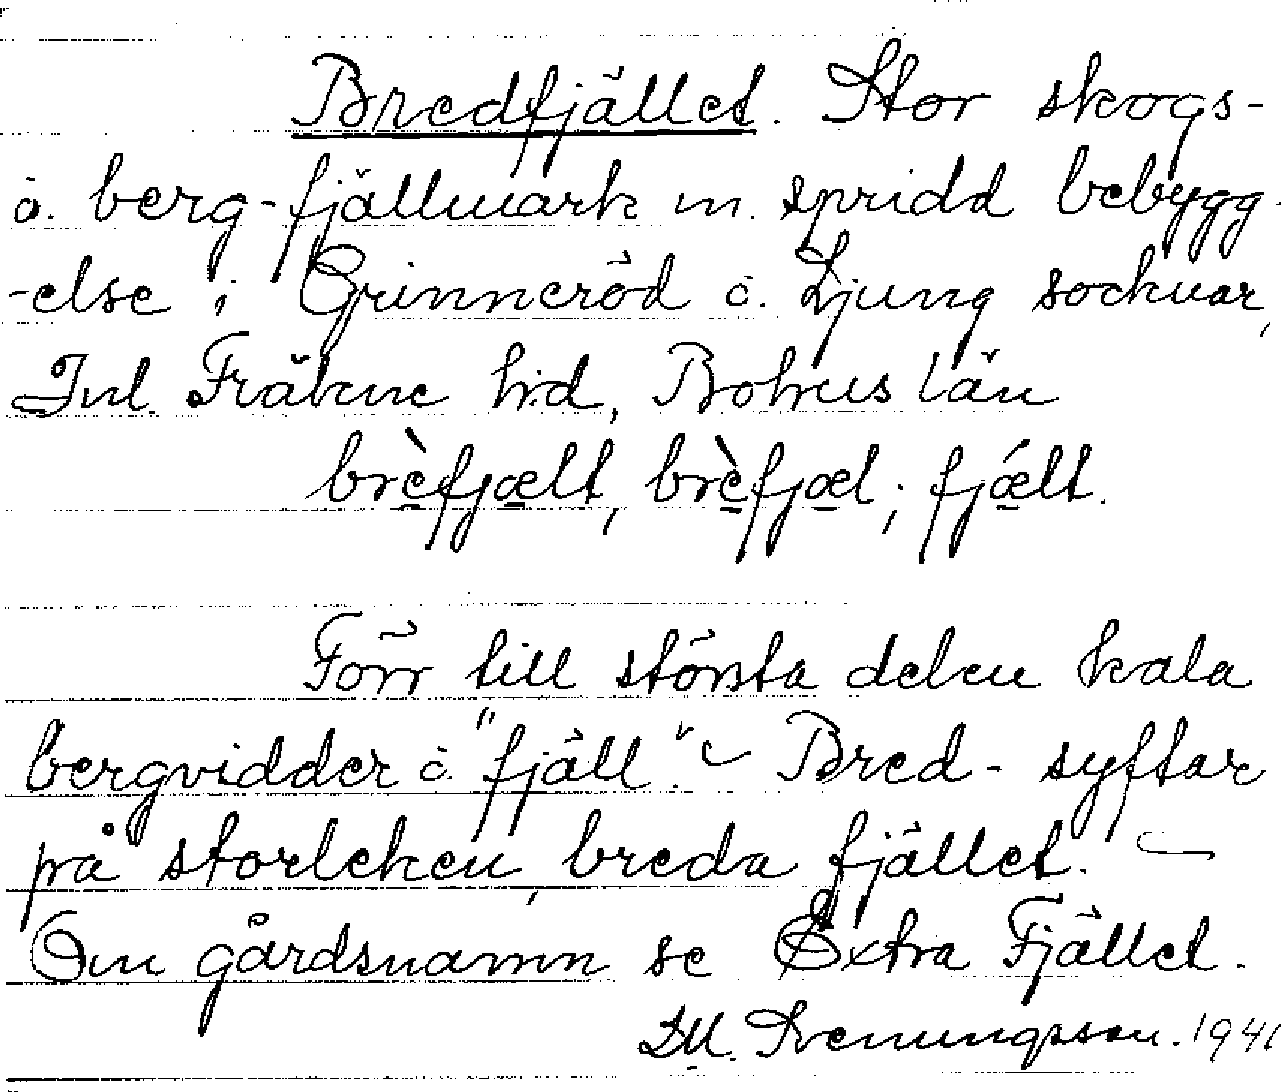 Bredfjället. Stor skogs-
o. berg-fjällmark m. spridd bebygg-
-else i Grinneröd o. Ljung socknar,
Inl. Fräkne hd, Bohus län
brèfjælt, brèfjæl; fjǽlt.
Förr till största delen kala
bergvidder o. "fjäll". Bred- syftar
på storleken, breda fjället. —
Om gårdsnamn se Extra Fjället.
Svenungsson. 1941